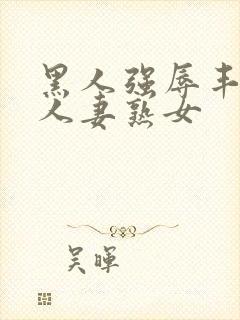 黑人强辱丰
人妻熟女
吴晖